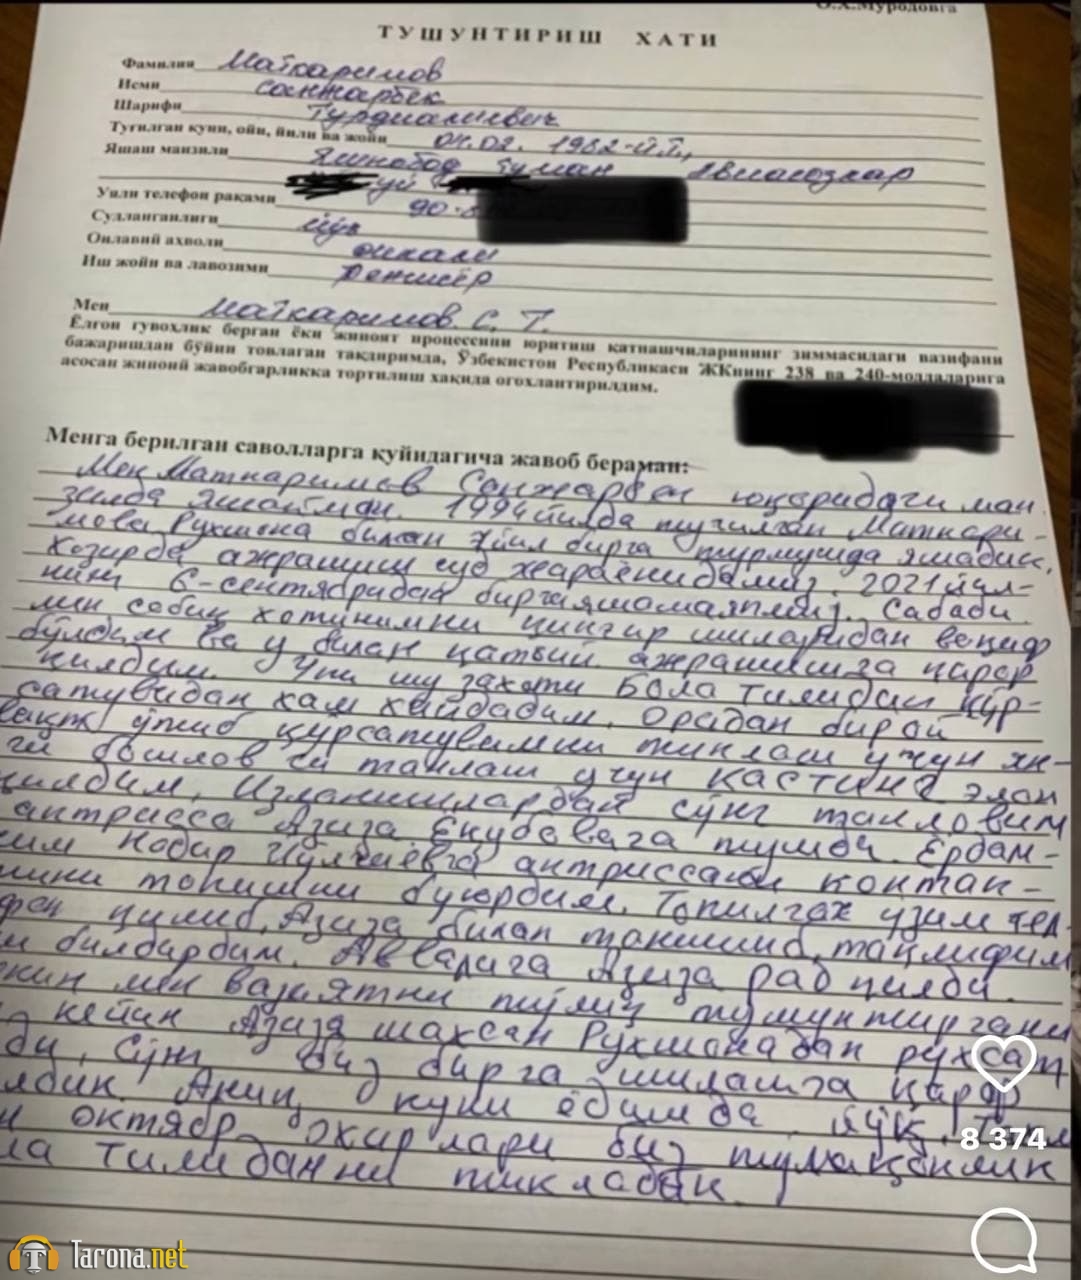 О.Х.Муродовга
ТУШУНТИРИШ ХАТИ
Фамилия Маткаримов
Исми Санжарбек
Шарифи Турдиалиевич
Туғилган куни, ойи, йили ва жойи 04.02. 1982-й.Т.,
Яшаш манзили Яшнобод туман Авиасозлар
уй
Уяли телефон рақами 90-
Судланганлиги йўқ
Оилавий аҳволи оилали
Иш жойи ва лавозими Режиссёр
Мен Маткаримов С. Т.
Ёлғон гувоҳлик берган ёки жиноят процессини юритиш қатнашчиларининг зиммасидаги вазифани
бажаришдан бўйин товлаган тақдиримда, Ўзбекистон Республикаси ЖКнинг 238 ва 240-моддаларига
асосан жиноий жавобгарликка тортилиш ҳақида огоҳлантирилдим.
Менга берилган саволларга қуйидагича жавоб бераман:
Мен Маткаримов Санжарбек юқоридаги ман
зилда яшайман. 1994 йилда туғилган Маткари-
мова Рухшона билан йил бирга турмушда яшадик,
хозирда ажрашиш суд жараёнидамиз. 2021 йил-
нинг 6-сентябридан бирга яшамаяпмиз. Сабаби
мен собиқ хотинимни қинғир ишларидан воқиф
бўлдим ва у билан қатъий ажрашишга қарор
қилдим. Уни шу заҳоти Бола тилидан кўр-
сатувидан хам хайдадим. Орадан бир ой
вақт ўтиб кўрсатувимни тиклаш учун ян-
ги бошловчи танлаш учун КАСТИНГ эълон
қилдим, Изланишлардан сўнг танловим
актриса Азиза Ёқубовага тушди. Ёрдам-
чим Нодир Йўлчиевга актрисани контак-
тини топишни буюрдим. Топилгач ўзим тел-
фон қилиб, Азиза билан танишиб, таклифим
ни билдирдим. Авваллига Азиза рад қилди.
Лекин мен вазиятни тўлиқ тушунтирганим
кейин Азиза шахсан Рухшонадан рухсат
ди, Сўнг биз бирга ишлашга қарор
лдик. Аниқ куни ёдимда йўқ,
н октябр охирлари биз тўлақонлик
ла тилиданни тикладик
8 374
Tarona.net